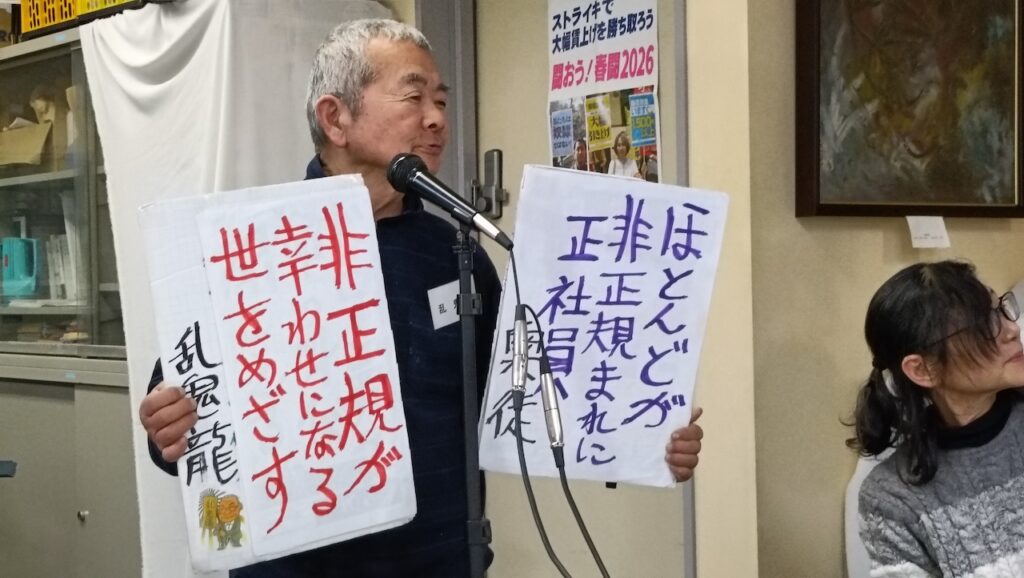 ストライキで
大幅賃上げを勝ち取ろう
闘おう!春闘2026
ほとんどが
非正規まれに
正社員
非正規が
幸わせになる
世をめざす
乱鬼龍
乱